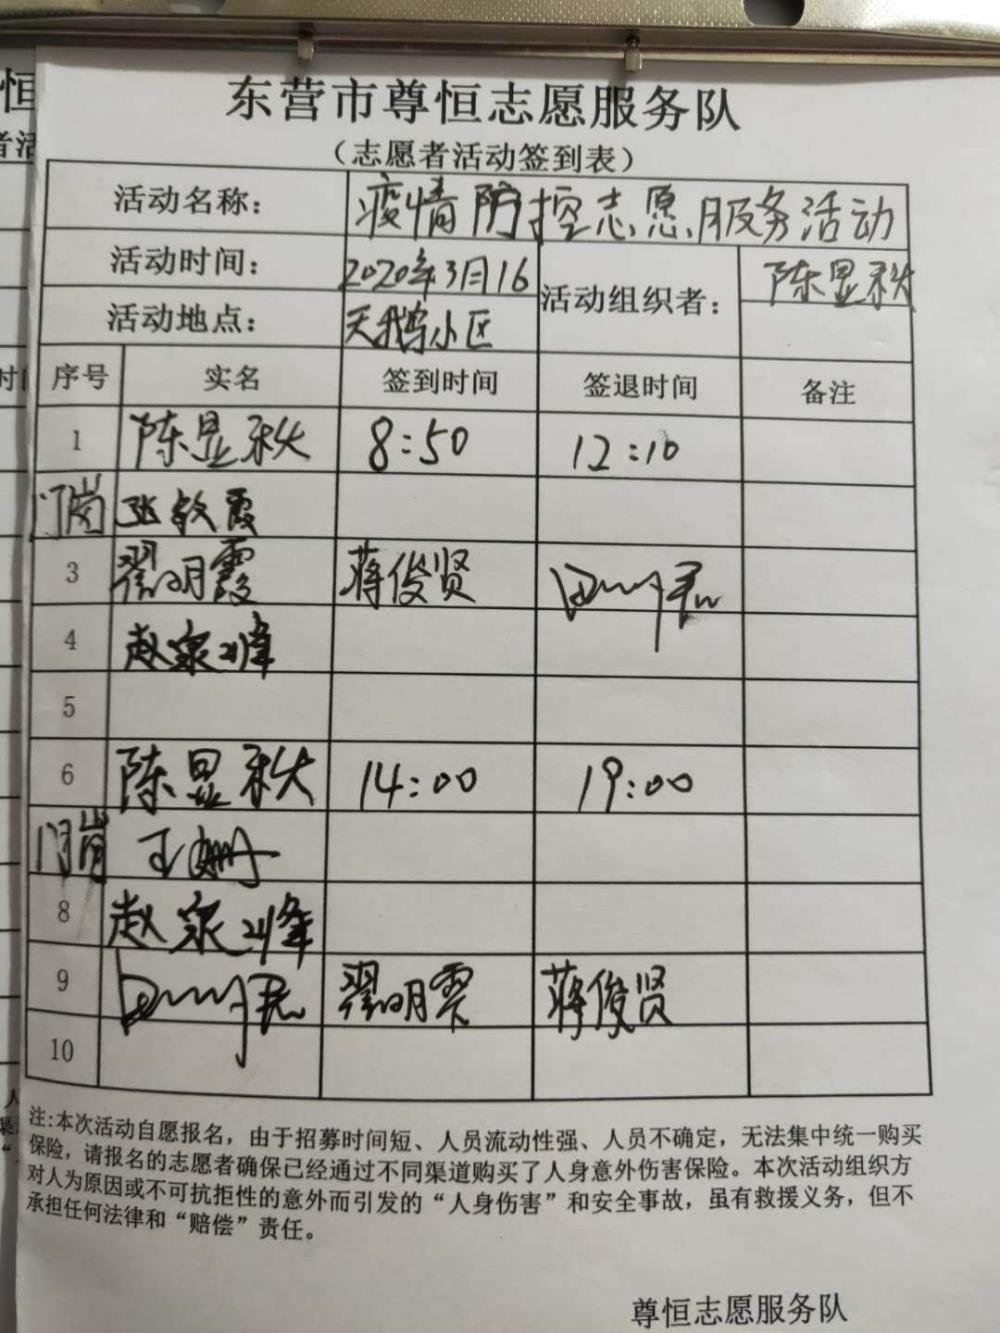 东营市尊恒志愿服务队
（志愿者活动签到表）
活动名称： 疫情防控志愿服务活动
活动时间： 2020年3月16 活动组织者： 陈显秋
活动地点： 天鹅小区
序号 实名 签到时间 签退时间 备注
1 陈显秋 8:50 12:10
门岗 张敏霞
3 翟明霞 蒋俊贤
4 赵泉峰
5
6 陈显秋 14:00 19:00
门岗 王姗
8 赵泉峰
9 翟明霞 蒋俊贤
10
注:本次活动自愿报名，由于招募时间短、人员流动性强、人员不确定，无法集中统一购买
保险，请报名的志愿者确保已经通过不同渠道购买了人身意外伤害保险。本次活动组织方
对人为原因或不可抗拒性的意外而引发的“人身伤害”和安全事故，虽有救援义务，但不
承担任何法律和“赔偿”责任。
尊恒志愿服务队